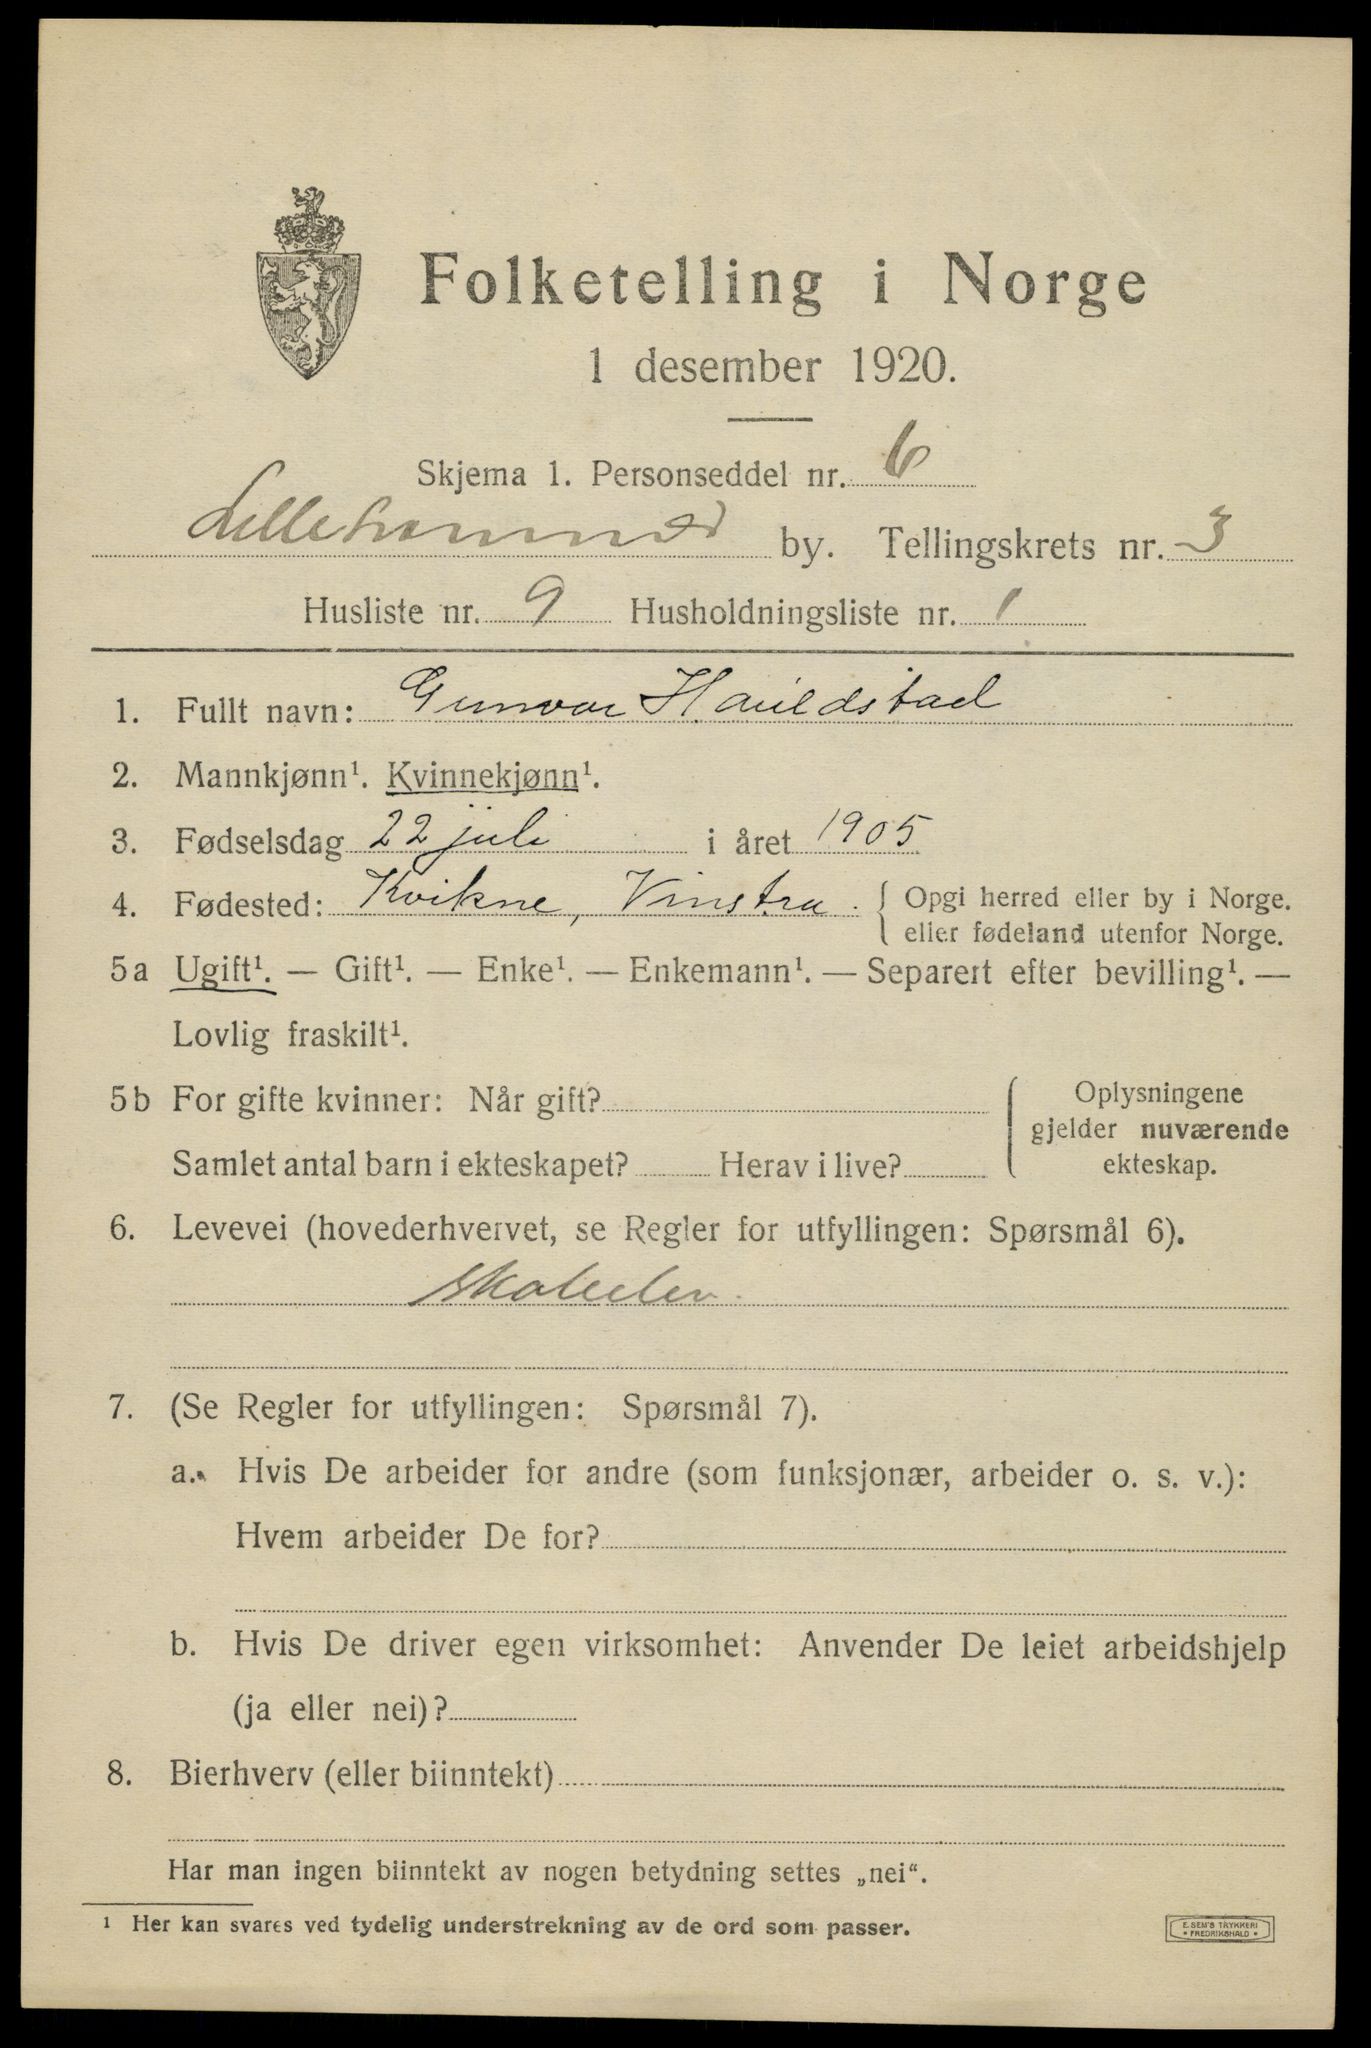 Folketelling i Norge
1 desember 1920.
Skjema 1. Personseddel nr. 6
Lillehammer by. Tellingskrets nr. 3
Husliste nr. 9 Husholdningsliste nr. 1
1. Fullt navn: Gunvor Hauldstad
2. Mannkjønn¹. Kvinnekjønn¹.
3. Fødselsdag 22 juli i året 1905
4. Fødested: Kvikne, Vinstra. Opgi herred eller by i Norge.
eller fødeland utenfor Norge.
5a Ugift¹. — Gift¹. — Enke¹. — Enkemann¹. — Separert efter bevilling¹. —
Lovlig fraskilt¹.
5b For gifte kvinner: Når gift?
Samlet antal barn i ekteskapet? Herav i live?
Oplysningene
gjelder nuværende
ekteskap.
6. Levevei (hovederhvervet, se Regler for utfyllingen: Spørsmål 6).
Skoleelev.
7. (Se Regler for utfyllingen: Spørsmål 7).
a. Hvis De arbeider for andre (som funksjonær, arbeider o. s. v.):
Hvem arbeider De for?
b. Hvis De driver egen virksomhet: Anvender De leiet arbeidshjelp
(ja eller nei)?
8. Bierhverv (eller biinntekt)
Har man ingen biinntekt av nogen betydning settes „nei“.
¹ Her kan svares ved tydelig understrekning av de ord som passer.
E. SEM'S TRYKKERI
• FREDRIKSHALD •